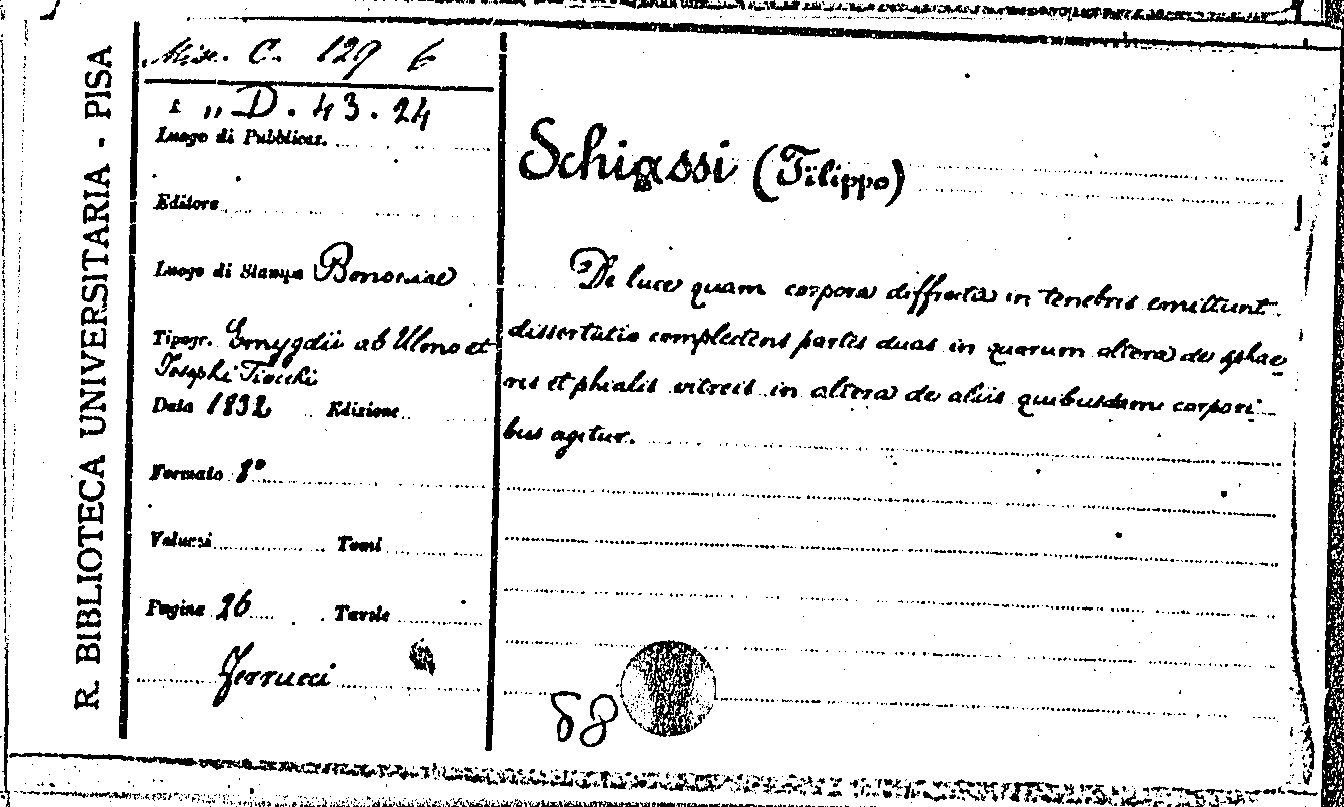 R. BIBLIOTECA UNIVERSITARIA - PISA
Misc. C. 129 6
" D. 43. 24
Luogo di Pubblicaz.
Editore
Luogo di Stampa Bononiae
Tipogr. Emygdii ab Ulmo et
Josephi Tiocchi
Data 1832 Edizione
Formato 8°
Volumi Tomi
Pagine 26 Tavole
Ferrucci
Schiassi (Filippo)
De luce quam corpora diffracta in tenebris emittunt
dissertatio complectens partes duas in quarum altera de sphae
ris et phialis vitreis in altera de aliis quibusdam corpori
bus agitur.
88